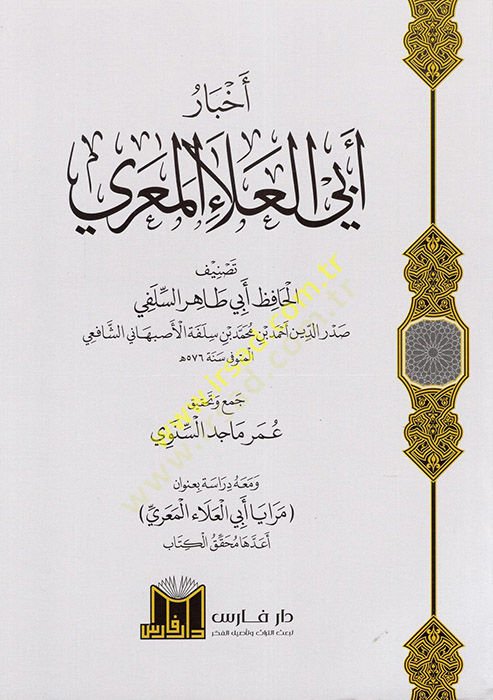 أَخْبَارُ
أَبِي الْعَلَاءِ الْمَعَرِّي
تَصْنِيف
الْحَافِظِ أَبِي طَاهِرِ السِّلَفِي
صَدْرِ الدِّينِ أَحْمَدَ بْنِ مُحَمَّدِ بْنِ سِلَفَةَ الْأَصْبَهَانِي الشَّافِعِي
الْمُتَوَفَّى سَنَةَ ٥٧٦هـ
جَمْع وَتَحْقِيق
عُمَر مَاجِد السِّنَوِي
وَمَعَهُ دِرَاسَة بِعِنْوَان
(مَرَايَا أَبِي الْعَلَاءِ الْمَعَرِّي)
أَعَدَّهَا مُحَقِّقُ الْكِتَابِ
دار فارس
لبعث التراث وتأصيل الفكر
دار فارس
www.irsad.com.tr